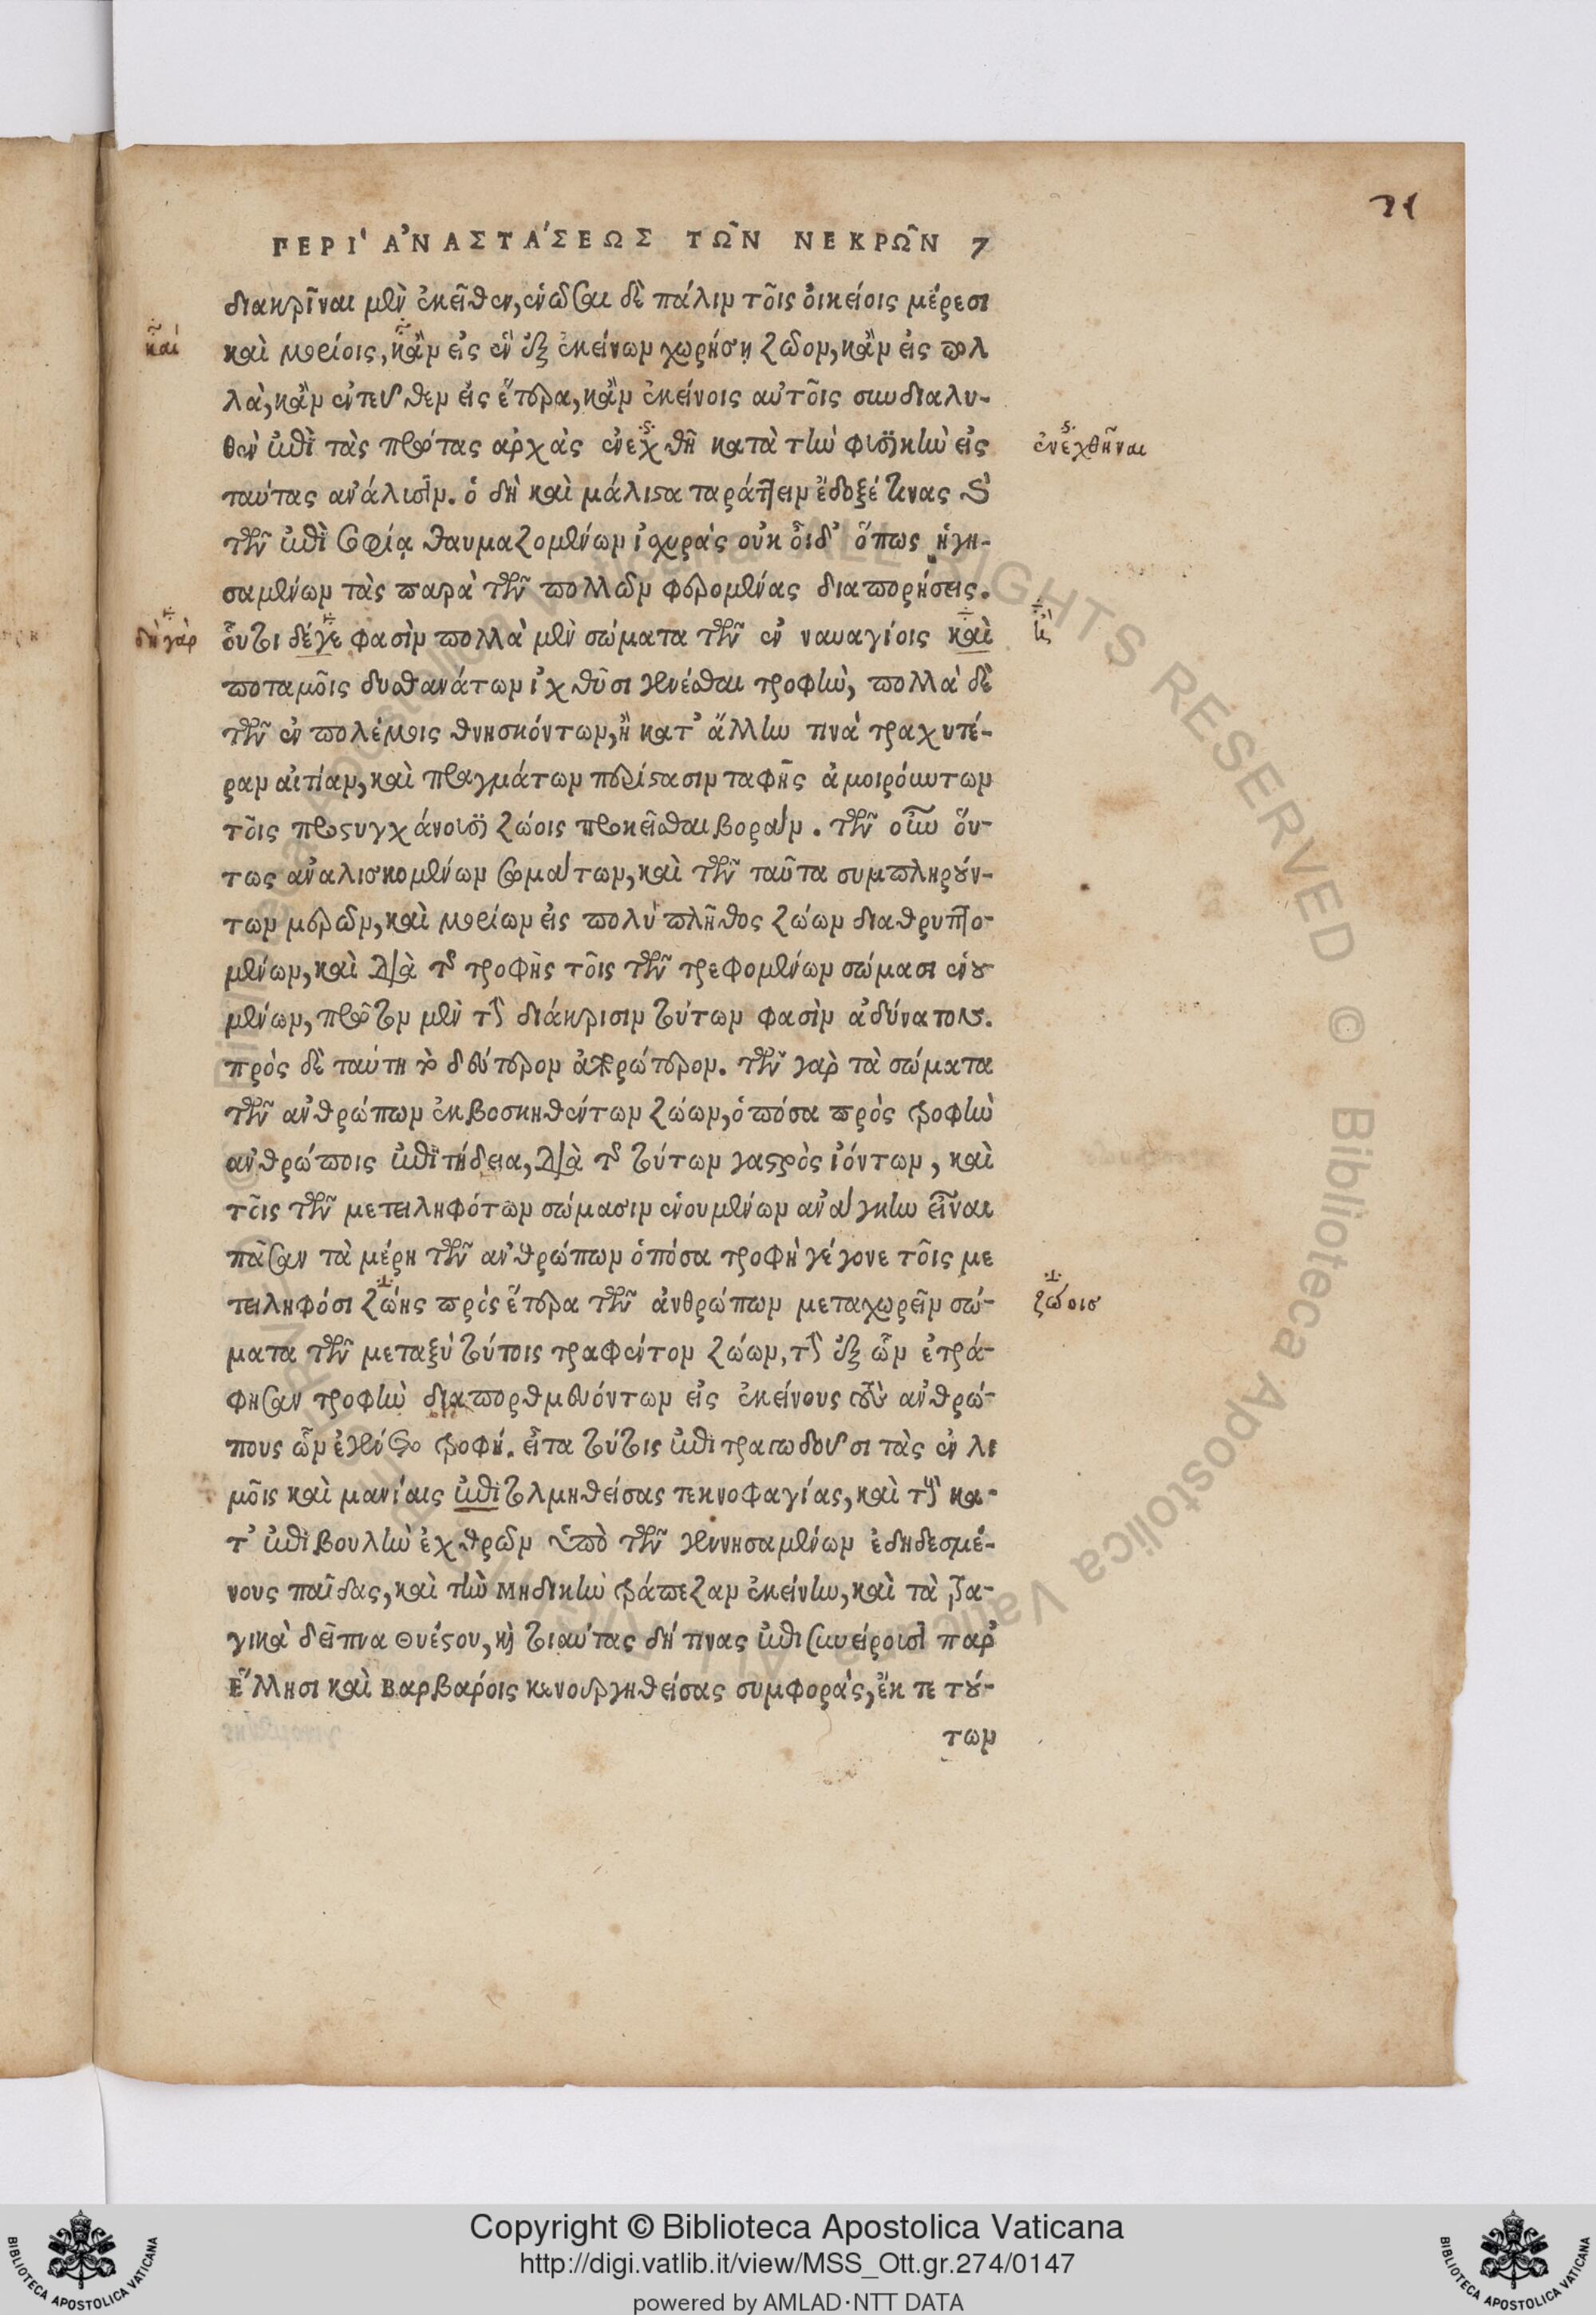 21
ΠΕΡΙ' ἈΝΑΣΤΑ'ΣΕΩΣ ΤΩ͂Ν ΝΕΚΡΩ͂Ν 7
διακρῖναι μὲν ἐκεῖθεν, ἑνῶσαι δὲ πάλιν τοῖς οἰκείοις μέρεσι
καί
καὶ μορίοις, κἂν εἰς ἓν ἐξ ἐκείνων χωρήσῃ ζῶον, κἂν εἰς πολ
λὰ, κἂν ἐντεῦθεν εἰς ἕτερα, κἂν ἐκείνοις αὐτοῖς συνδιαλυ-
θὲν ἐπὶ τὰς πρώτας ἀρχὰς ἐνεχθῆ κατὰ τὴν φυσικὴν εἰς
ἐνεχθῆναι
ταύτας ἀνάλυσιν. ὁ δὴ καὶ μάλιστα ταράττειν ἔδοξέ τινας
τῶν ἐπὶ σοφίᾳ θαυμαζομένων ἰσχυρὰς οὐκ οἶδ' ὅπως ἡγη-
σαμένων τὰς παρὰ τῶν πολλῶν φερομένας διαπορήσεις.
δὴ γὰρ
οὗτοι δέγε φασὶν πολλὰ μὲν σώματα τῶν ἐν ναυαγίοις καὶ
ποταμοῖς δυσθανάτων ἰχθύσι γενέσθαι τροφὴν, πολλὰ δὲ
τῶν ἐν πολέμοις θνησκόντων, ἢ κατ' ἄλλην τινὰ τραχυτέ-
ραν αἰτίαν, καὶ πραγμάτων περίστασιν ταφῆς ἀμοιρούντων
τοῖς προστυγχάνουσι ζώοις προκεῖσθαι βοράν. τῶν οὖν οὕ-
τως ἀναλισκομένων σωμάτων, καὶ τῶν ταῦτα συμπληρούν-
των μερῶν, καὶ μορίων εἰς πολὺ πλῆθος ζώων διαθρυπτο-
μένων, καὶ διὰ τῆς τροφῆς τοῖς τῶν τρεφομένων σώμασι ἑνου
μένων, πρῶτον μὲν τὴν διάκρισιν τούτων φασὶν ἀδύνατον.
πρὸς δὲ ταύτῃ τὸ δεύτερον ἀπορώτερον. τῶν γὰρ τὰ σώματα
τῶν ἀνθρώπων ἐκβοσκηθέντων ζώων, ὁπόσα πρὸς τροφὴν
ἀνθρώποις ἐπιτήδεια, διὰ τῆς τούτων γαστρὸς ἰόντων, καὶ
τοῖς τῶν μετειληφότων σώμασιν ἑνουμένων ἀνάγκην εἶναι
πᾶσαν τὰ μέρη τῶν ἀνθρώπων ὁπόσα τροφὴ γέγονε τοῖς με
τειληφόσι ζώης πρὸς ἕτερα τῶν ἀνθρώπων μεταχωρεῖν σώ-
ζώοισ
ματα τῶν μεταξὺ τούτοις τραφέντον ζώων, τὴν ἐξ ὧν ἐτρά-
φησαν τροφὴν διαπορθμευόντων εἰς ἐκείνους τοὺς ἀνθρώ-
πους ὧν ἐγένετο τροφή. εἶτα τούτοις ἐπιτραγωδοῦσι τὰς ἐν λι
μοῖς καὶ μανίαις ἐπιτολμηθείσας τεκνοφαγίας, καὶ τοὺς κα-
τ' ἐπιβουλὴν ἐχθρῶν ὑπὸ τῶν γεννησαμένων ἐδηδεσμέ-
νους παῖδας, καὶ τὴν Μηδικὴν τράπεζαν ἐκείνην, καὶ τὰ τρα-
γικὰ δεῖπνα Θυέστου, καὶ τοιαύτας δή τινας ἐπισυνείρουσι παρ'
Ἕλλησι καὶ Βαρβάροις κενουργηθείσας συμφοράς, ἔκ τε τού-
των
Copyright © Biblioteca Apostolica Vaticana
http://digi.vatlib.it/view/MSS_Ott.gr.274/0147
powered by AMLAD·NTT DATA
BIBLIOTECA APOSTOLICA VATICANA
BIBLIOTECA APOSTOLICA VATICANA